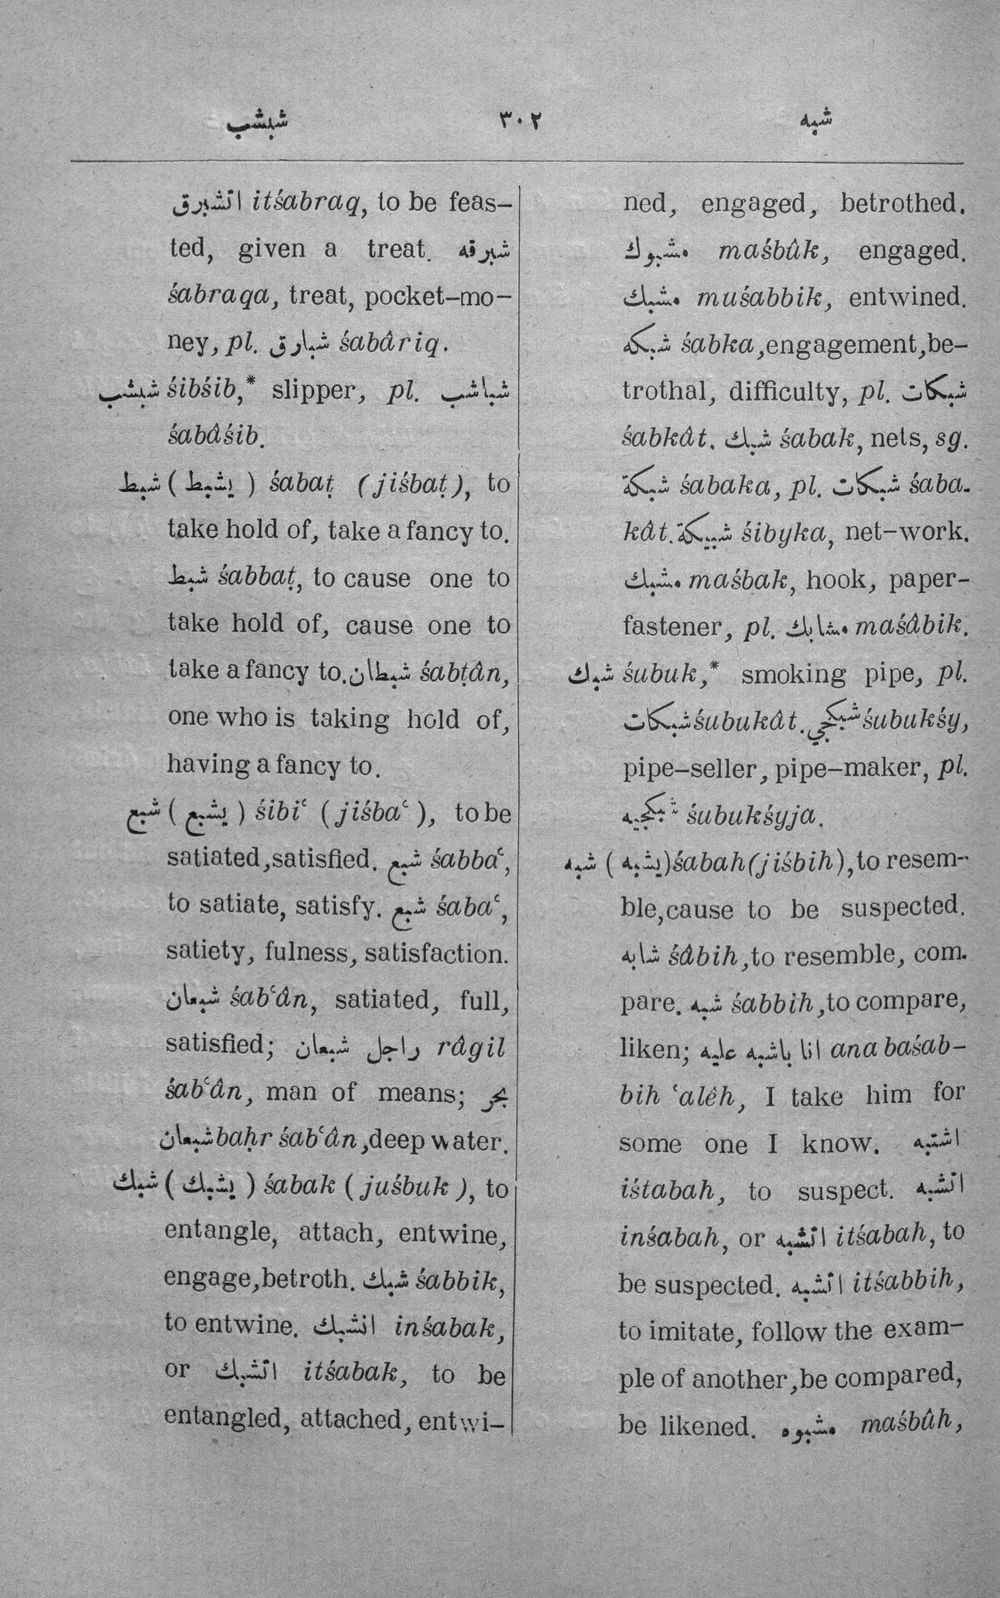 شبشب ٣٠٢ شبه
اتشبرق itśabraq, to be feas-
ted, given a treat. شبرقه
śabraqa, treat, pocket-mo-
ney, pl. شبارق śabâriq.
شبشب śibśib,* slipper, pl. شباشب
śabâśib.
شبط ( يشبط ) śabaṭ (jiśbaṭ), to
take hold of, take a fancy to.
شبط śabbaṭ, to cause one to
take hold of, cause one to
take a fancy to. شبطان śabṭân,
one who is taking hold of,
having a fancy to.
شبع ( يشبع ) śibiʿ (jiśbaʿ), to be
satiated, satisfied. شبع śabbaʿ,
to satiate, satisfy. شبع śabaʿ,
satiety, fulness, satisfaction.
شبعان śabʿân, satiated, full,
satisfied; راجل شبعان râgil
śabʿân, man of means; بحر
شبعان baḥr śabʿân, deep water.
شبك ( يشبك ) śabak (juśbuk), to
entangle, attach, entwine,
engage, betroth. شبك śabbik,
to entwine. انشبك inśabak,
or اتشبك itśabak, to be
entangled, attached, entwi-
ned, engaged, betrothed.
مشبوك maśbûk, engaged.
مشبك muśabbik, entwined.
شبكه śabka, engagement, be-
trothal, difficulty, pl. شبكات
śabkât. شبك śabak, nets, sg.
شبكة śabaka, pl. شبكات śaba-
kât. شبيكة śibyka, net-work.
مشبك maśbak, hook, paper-
fastener, pl. مشابك maśâbik.
شبك śubuk,* smoking pipe, pl.
شبكات śubukât. شبكجي śubukśy,
pipe-seller, pipe-maker, pl.
شبكجيه śubukśyja.
شبه ( يشبه ) śabah (jiśbih), to resem-
ble, cause to be suspected.
شابه śâbih, to resemble, com-
pare. شبه śabbih, to compare,
liken; انا باشبه عليه ana baśab-
bih ʿalêh, I take him for
some one I know. اشتبه
iśtabah, to suspect. انشبه
inśabah, or اتشبه itśabah, to
be suspected. اتشبه itśabbih,
to imitate, follow the exam-
ple of another, be compared,
be likened. مشبوه maśbûh,